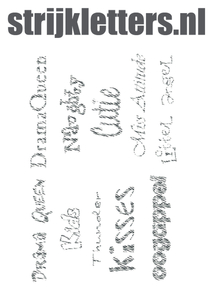 strijkletters.nl
Drama Queen
Naughty
Cutie
Miss Attitude
Little Angel
DRAMA QUEEN
Kids
Thunder
Kisses
oogappel